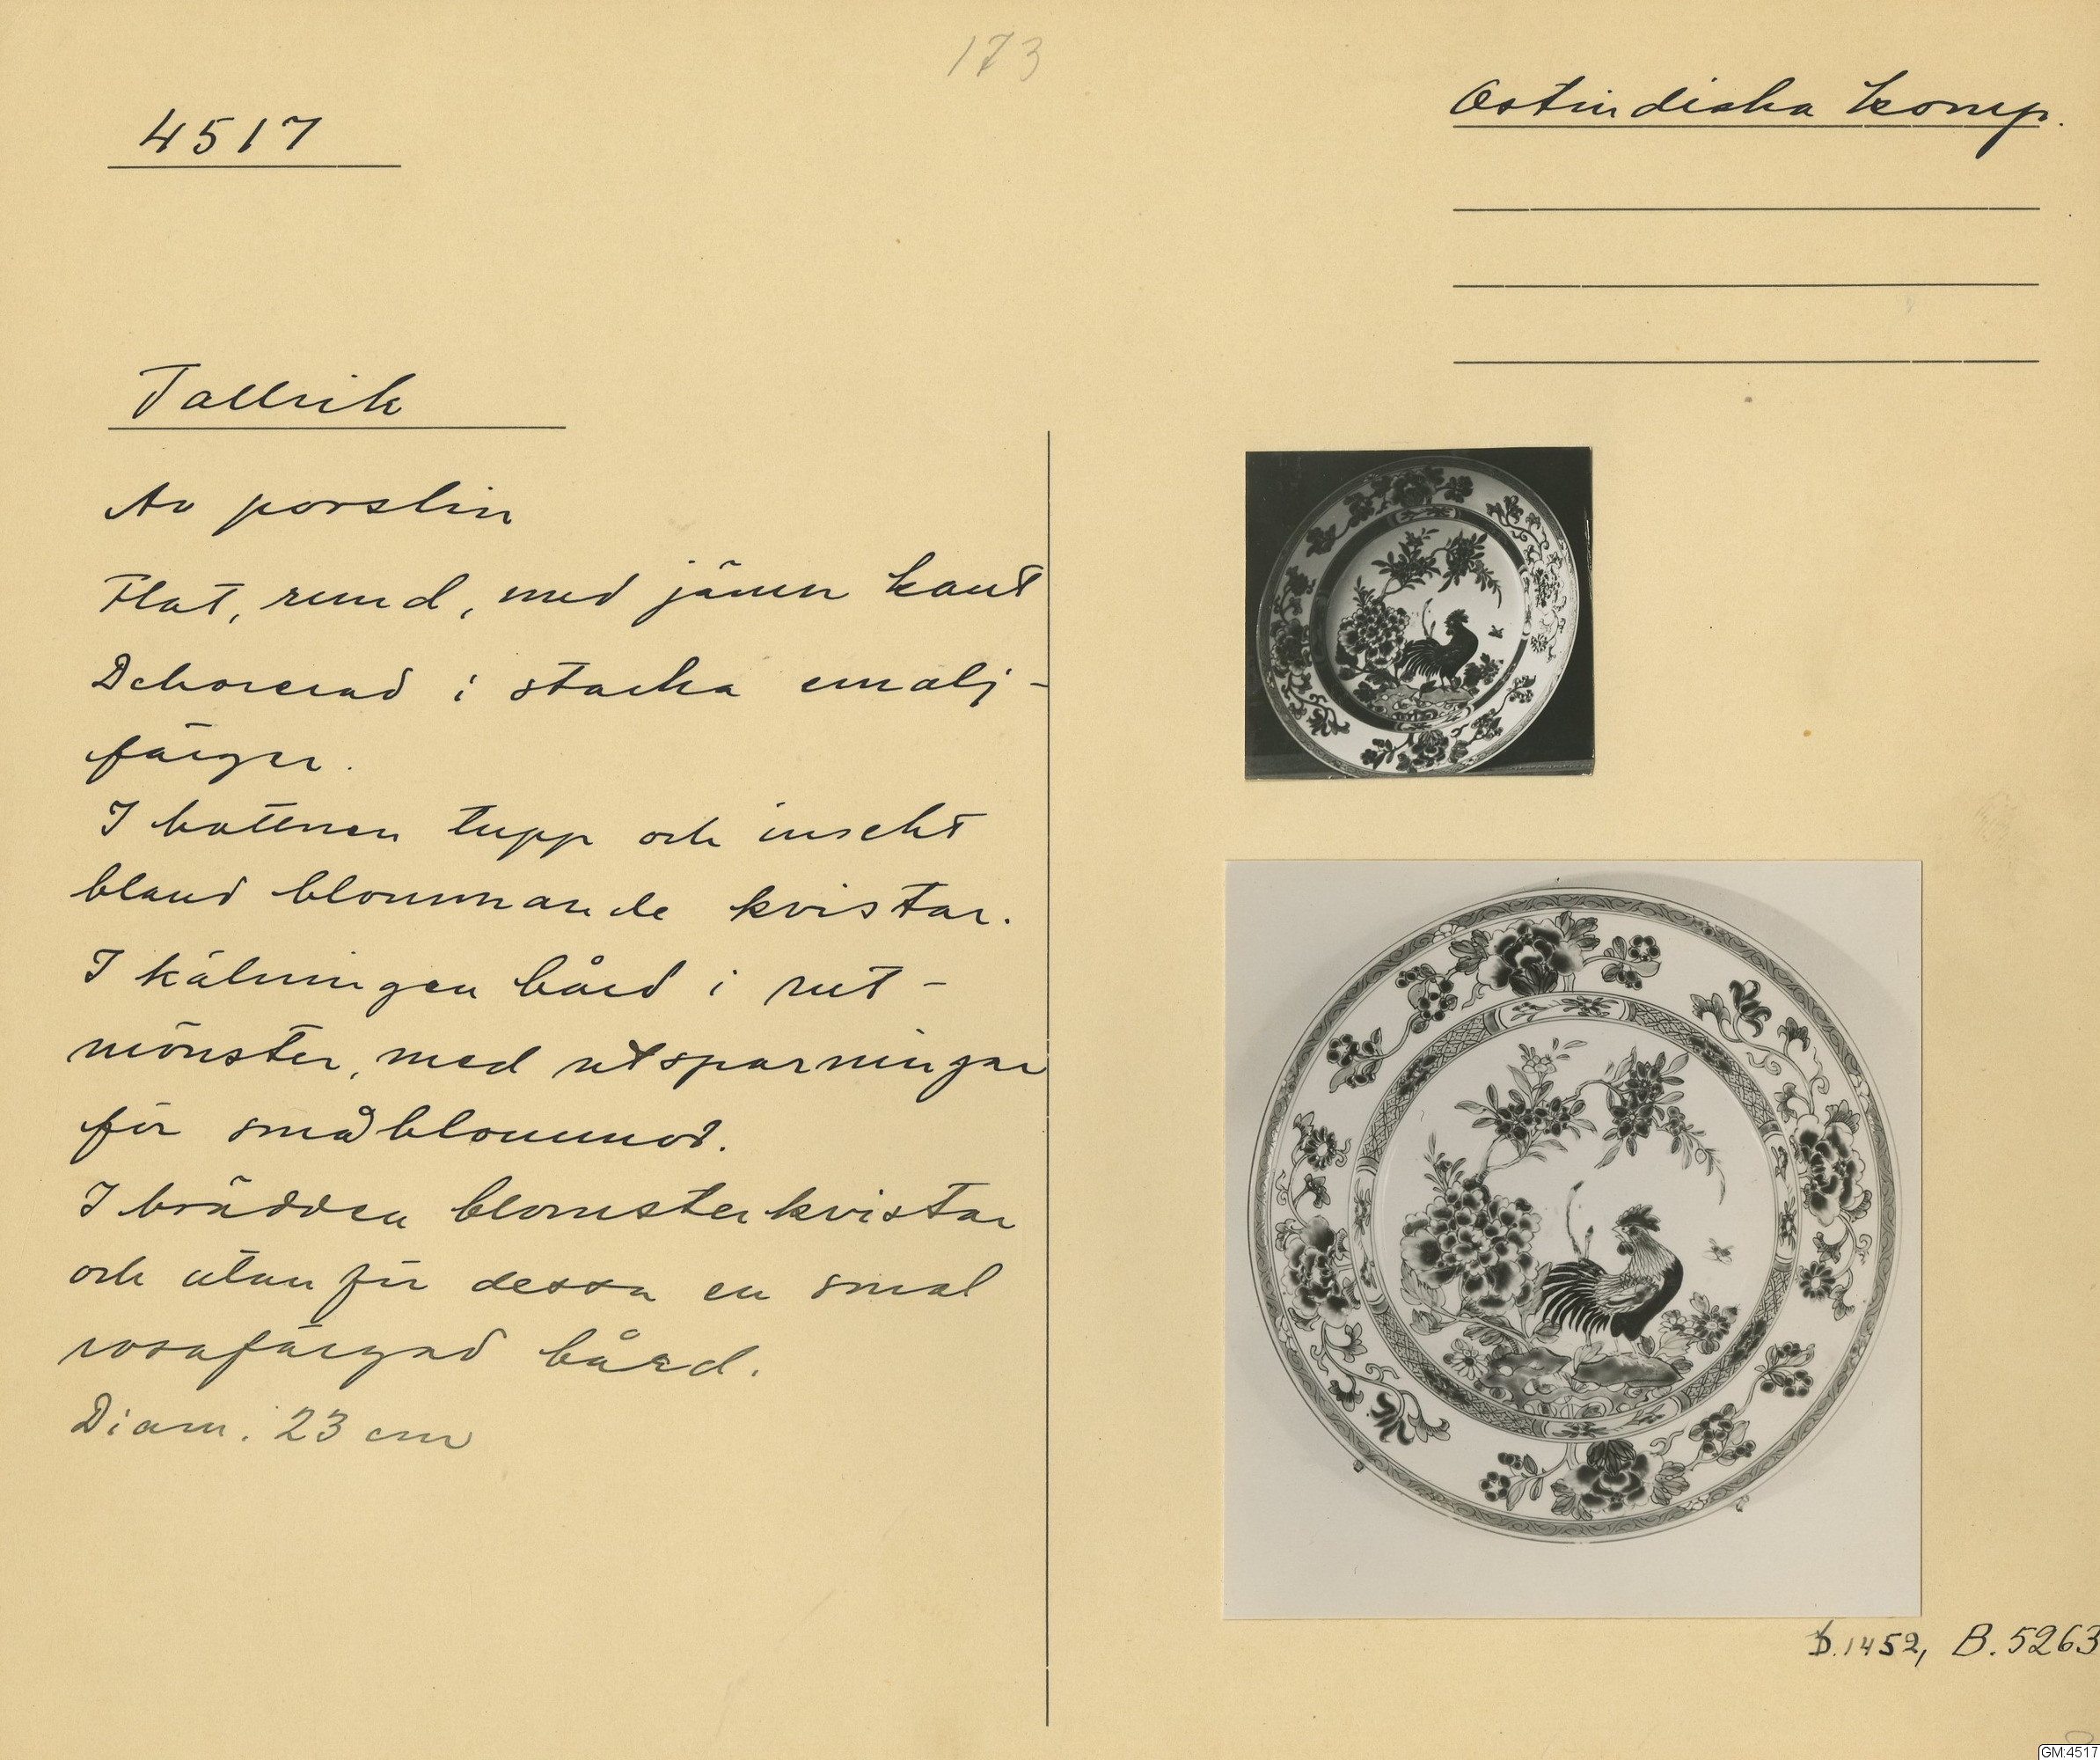 173
4517
Ostindiska komp.
Tallrik
Av porslin
Flat, rund, med jämn kant
Dekorerad i starka emalj-
färger.
I bottnen tupp och insekt
bland blommande kvistar.
I kälningen bård i rut-
mönster, med utsparningar
för småblommor.
I brädden blomsterkvistar
och utanför dessa en smal
rosafärgad bård.
Diam. 23 cm
D.1452, B.5263
GM:4517